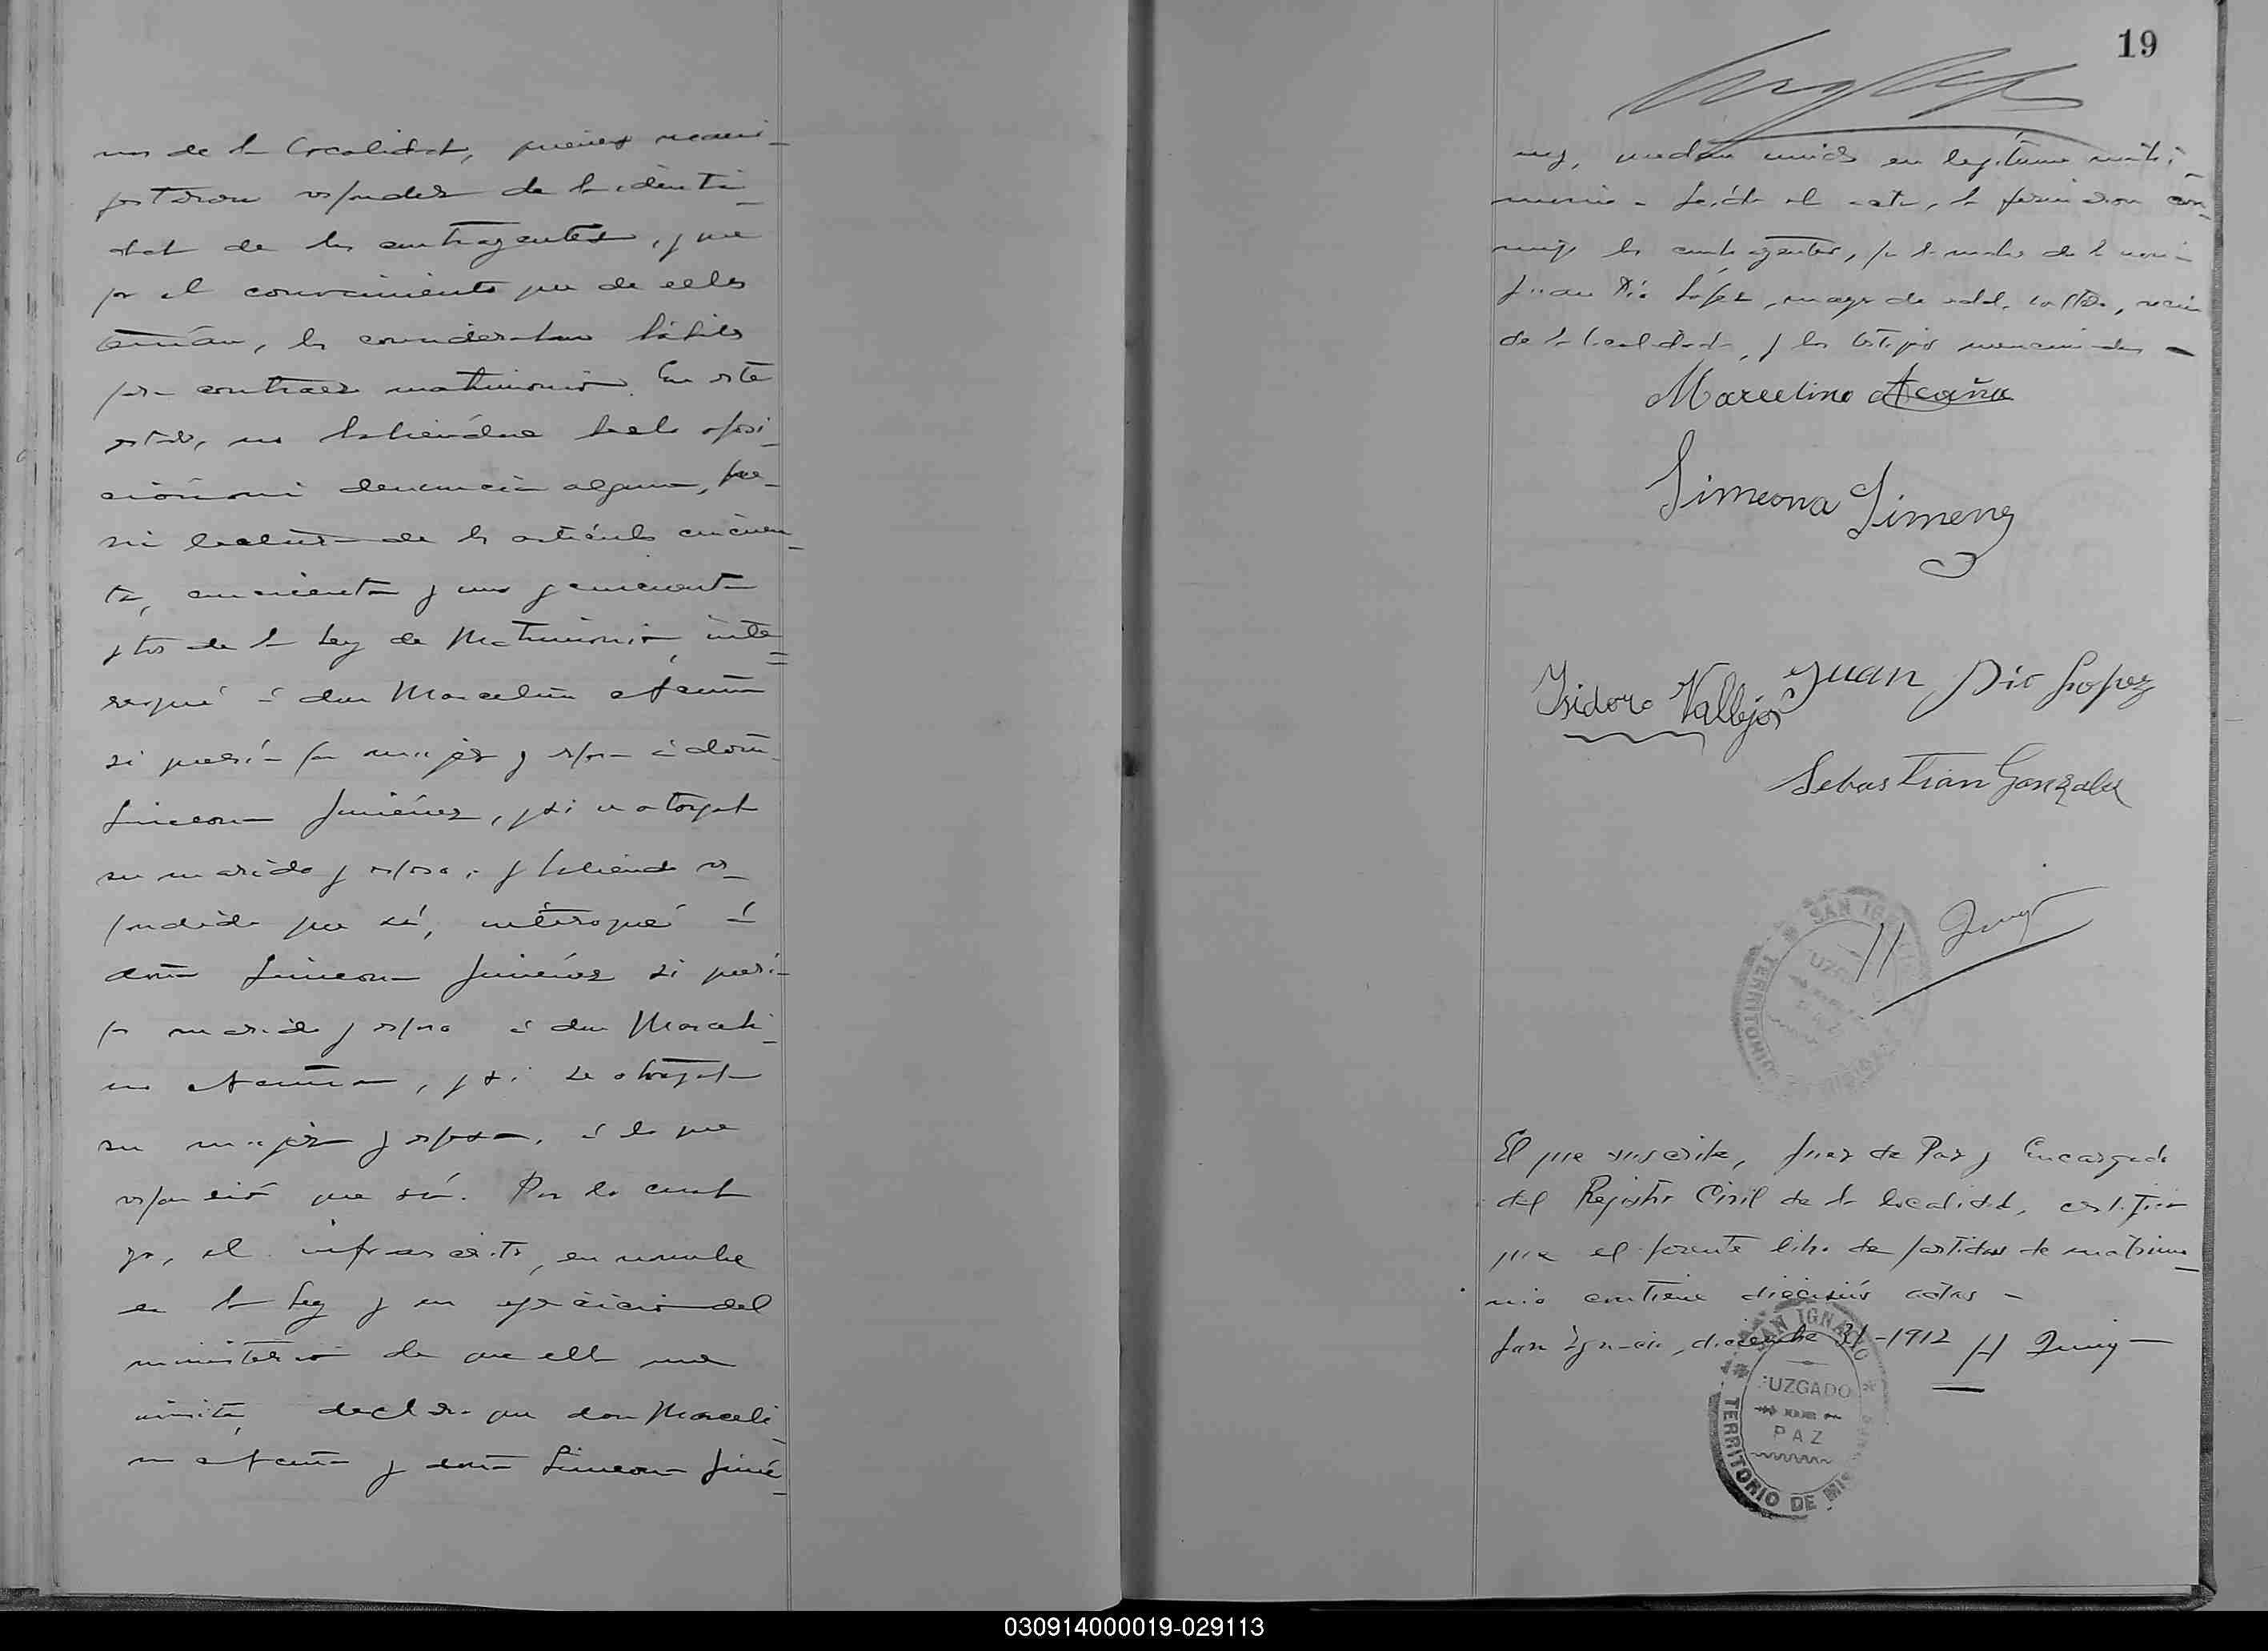 nos de la localidad, quienes mani-
festaron responder de la identi-
dad de los contrayentes, y que
por el conocimiento que de ellos
tenían, los consideraban hábiles
para contraer matrimonio. En este
estado, no habiéndose hecho oposi-
ción ni denuncia alguna,
di lectura de los artículos cincuen-
ta, cincuenta y uno y cincuenta
y tres de la Ley de Matrimonio, inte-
rrogué á don Marcelino Acuña
si quería por mujer y esposa á doña
Simeona Jiménez, y si se otorgaba
su marido y esposo; y habiendo res-
pondido que sí, interrogué á
doña Simeona Jiménez si quería
por marido y esposo á don Marceli-
no Acuña, y si se otorgaba
su mujer y esposa, á lo que
respondió que sí. Por lo cual
yo, el infrascrito, en nombre
de la Ley y en ejercicio del
ministerio de que ella me
inviste, declaro que don Marceli-
no Acuña y doña Simeona Jimé-
19
nez, quedan unidos en legítimo matri-
monio - Leída el acta, la firmaron con-
migo los contrayentes, por la madre de la novia
Juan Pío López, mayor de edad, soltero, vecino
de la localidad, y los testigos mencionados -
Marcelino Acuña
Simeona Jimenez
Juan Pio Lopez
Isidoro Vallejos
Sebastian Gonzalez
SAN IGNACIO
JUZGADO
TERRITORIO
El que suscribe, Juez de Paz y Encargado
del Registro Civil de la localidad, certifica
que el presente libro de partidas de matrimo-
nio contiene dieciséis actas -
San Ignacio, diciembre 31-1912
SAN IGNACIO
JUZGADO
DE
PAZ
TERRITORIO DE MISIONES
030914000019-029113